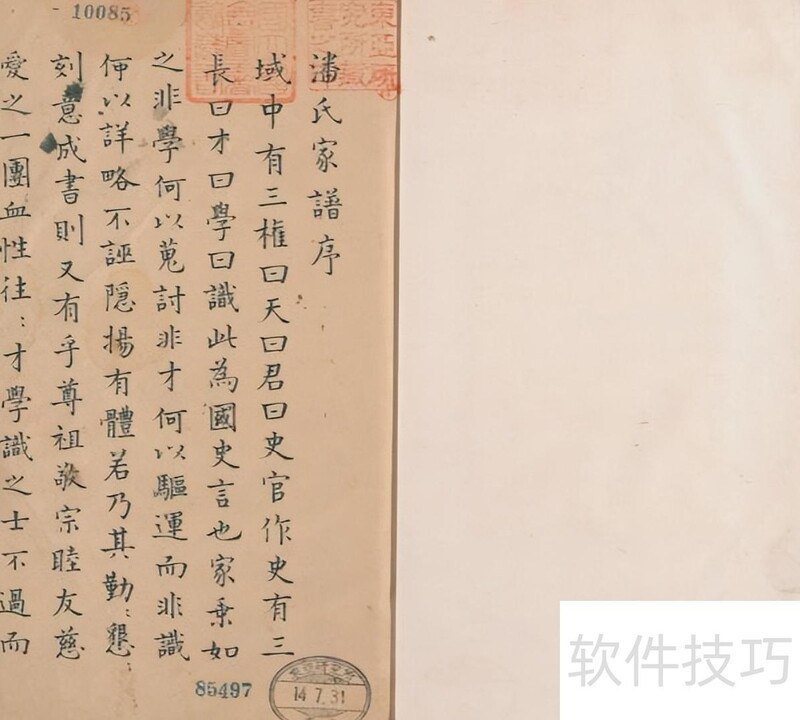 10085
潘氏家譜序
域中有三權曰天曰君曰史官作史有三
長曰才曰學曰識此為國史言也家乗如
之非學何以蒐討非才何以驅運而非識
何以詳略不誣隱揚有體若乃其勤〻懇〻
刻意成書則又有乎尊祖敬宗睦友慈
愛之一團血性往〻才學識之士不過而
東亞研
究所藏
85497
14.7.31
软件技巧